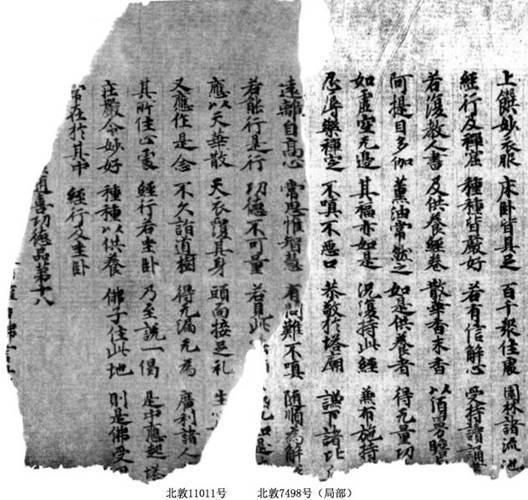 上饌妙衣服 床臥皆具足 百千眾住處 園林諸流池
經行及禪窟 種種皆嚴好 若有信解心 受持讀誦
若復教人書 及供養經卷 散華香末香 以須曼瞻
阿提目多伽 薰油常燃之 如是供養者 得无量功
如虛空无邊 其福亦如是 況復持此經 兼布施持
忍辱樂禪定 不嗔不惡口 恭敬於塔廟 謙下諸比
遠離自高心 常思惟智慧 有問難不嗔 隨順為解
若能行是行 功德不可量 若見此 如是
應以天華散 天衣覆其身 頭面接足礼 生
又應作是念 不久詣道樹 得无漏无為 廣利諸人
其所住止處 經行若坐臥 乃至說一偈 是中應起塔
莊嚴令妙好 種種以供養 佛子住此地 則是佛受
常在於其中 經行及坐臥
隨喜功德品第十八
北敦11011号 北敦7498号（局部）